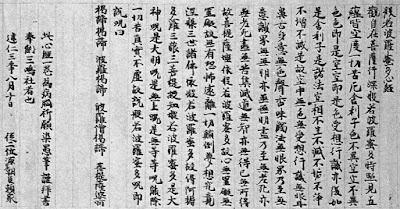 般若波羅蜜多心経
観自在菩薩行深般若波羅蜜多時照見五
蘊皆空度一切苦厄舎利子色不異空空不異
色色即是空空即是色受想行識亦復如
是舎利子是諸法空相不生不滅不垢不浄
不増不減是故空中無色無受想行識無眼耳
鼻舌身意無色聲香味觸法無眼界乃至無
意識界無無明亦無無明盡乃至無老死亦
無老死盡無苦集滅道無智亦無得以無所得
故菩提薩埵依般若波羅蜜多故心無罣礙無
罣礙故無有恐怖遠離一切顛倒夢想究竟
涅槃三世諸佛依般若波羅蜜多故得阿耨
多羅三藐三菩提故知般若波羅蜜多是大
神咒是大明咒是無上咒是無等等咒能除
一切苦真實不虚故説般若波羅蜜多咒即
説咒曰
揭諦揭諦 波羅揭諦 波羅僧揭諦 菩提薩婆訶
此心經 為病 祈願染愚筆謹拝書
奉 三嶋社者也
建仁三年八月十日
従二位源朝臣頼家